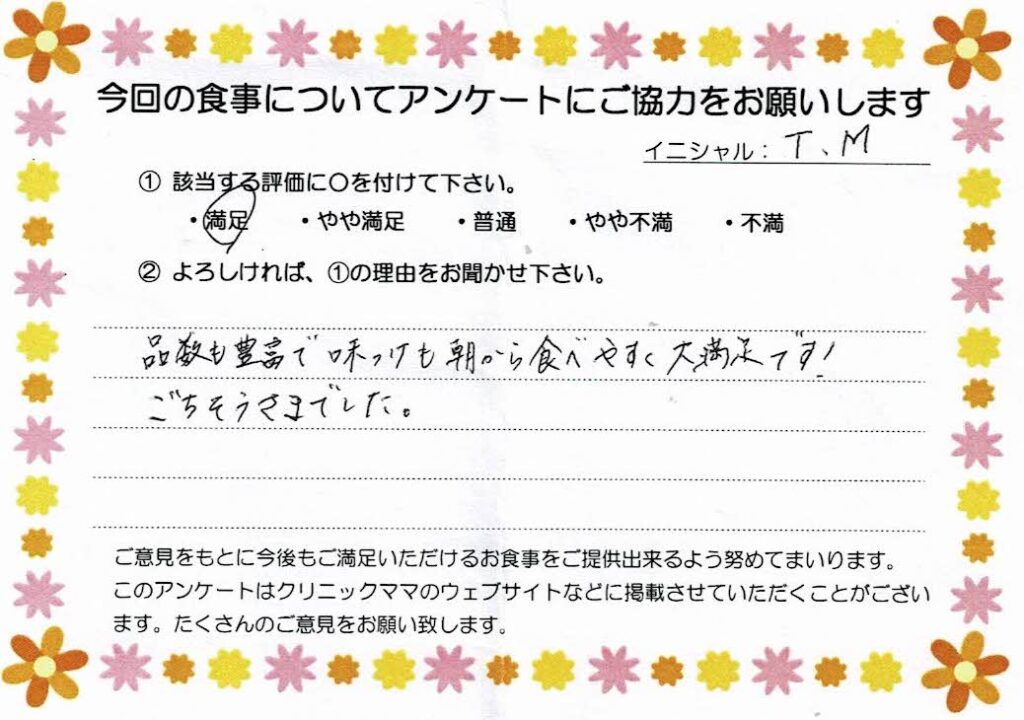 今回の食事についてアンケートにご協力をお願いします
イニシャル： T、M
① 該当する評価に○を付けて下さい。
・満足 ・やや満足 ・普通 ・やや不満 ・不満
② よろしければ、①の理由をお聞かせ下さい。
品数も豊富で味つけも朝から食べやすく大満足です！
ごちそうさまでした。
ご意見をもとに今後もご満足いただけるお食事をご提供出来るよう努めてまいります。
このアンケートはクリニックママのウェブサイトなどに掲載させていただくことがござい
ます。たくさんのご意見をお願い致します。